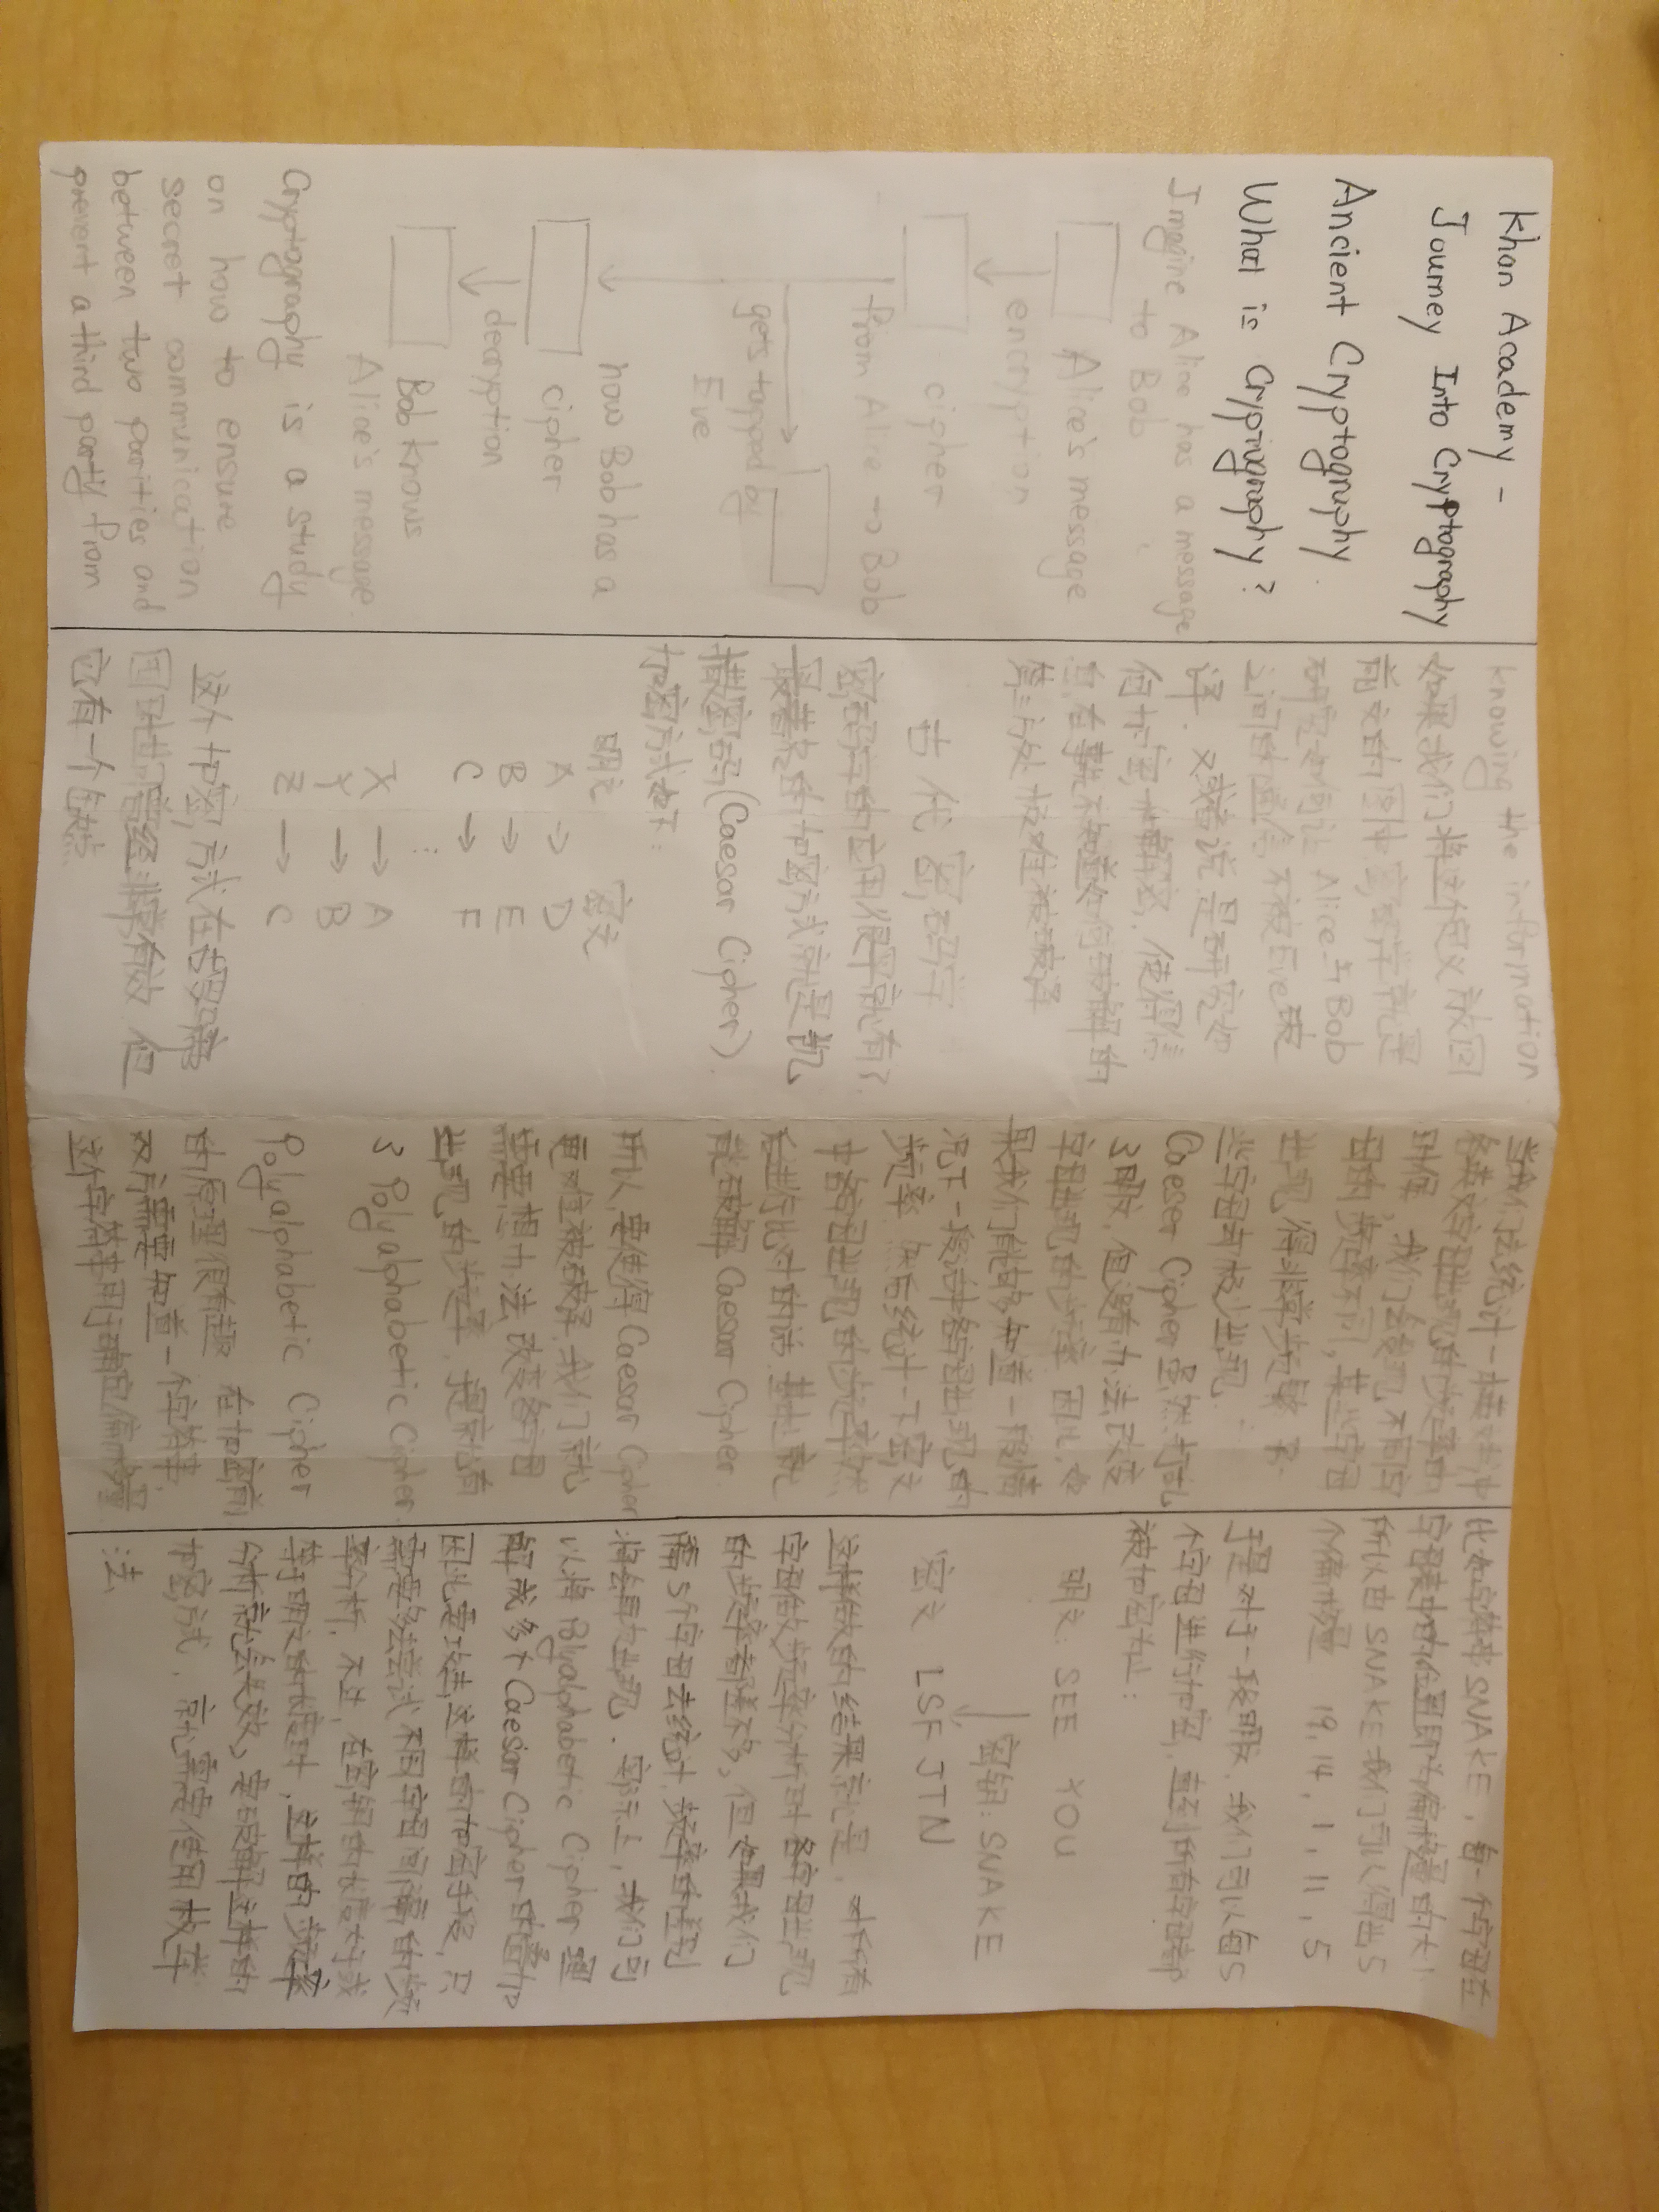 Khan Academy -
Journey Into Cryptography
Ancient Cryptography
What is Cryptography?
Imagine Alice has a message
to Bob
Alice's message
encryption
cipher
from Alice to Bob
gets tapped by
Eve
now Bob has a
cipher
decryption
Bob knows
Alice's message.
Cryptography is a study
on how to ensure
secret communication
between two parities and
prevent a third party from
knowing the information.
如果我们将这个定义放回
前文的图中,密码学就是
研究如何让 Alice 与 Bob
之间的通信不被Eve破
译. 又或者说,是研究如
何加密和解密,使得信
息,在事先不知道如何破解的
第三方处极难被破译
古代密码学
密码学的应用很早就有了.
最著名的加密方式就是凯
撒密码(Caesar Cipher).
加密方式如下:
明文 密文
A → D
B → E
C → F
⋮
X → A
Y → B
Z → C
这个加密方式在古罗马帝
国时期曾经非常有效 但
它有一个缺点
当我们去统计一本英文书中
各英文字母出现的频率的
时候,我们会发现,不同字
母的频率不同,某些字母
出现得非常频繁
些字母却极少出现.
Caeser Cipher 虽然打乱
了明文,但没有办法改变
字母出现的频率 因此,如
果我们能够知道一般情
况下一段话中各字母出现的
频率.然后统计一下密文
中各字母出现的频率然
后进行比对的话.基本上就
能破解 Caesar Cipher.
所以,要使得 Caesar Cipher
更难被破译,我们就
需要想办法改变各字母
出现的频率.于是就有
了 Polyalphabetic Cipher.
Polyalphabetic Cipher
的原理很有趣 在加密前
双方需要知道一个字符串,
这个字符串用于确定偏移量
比如字符串 SNAKE, 每一个字母在
字母表中的位置即为偏移量的大小
所以由 SNAKE 我们可以得出5
个偏移量 19, 14, 1, 11, 5
于是对于一段明文,我们可以每5
个字母进行加密,直到所有字母都
被加密为止:
明文: SEE YOU
密钥: SNAKE
密文 LSF JTN
这样做的结果就是,对所有
字母做频率分析时各字母出现
的频率都差不多,但如果我们
隔5个字母去统计,频率的差别
将会再次出现. 实际上,我们可
以将 Polyalphabetic Cipher 理
解成多个 Caesar Cipher 的叠加
因此要攻击这样的加密手段,只
需要多去尝试不同字母间隔的频
率分析, 不过, 在密钥的长度大于或
等于明文的长度时,这样的频率
分析就会失效,要破解这样的
加密方式,就需要使用枚举
法